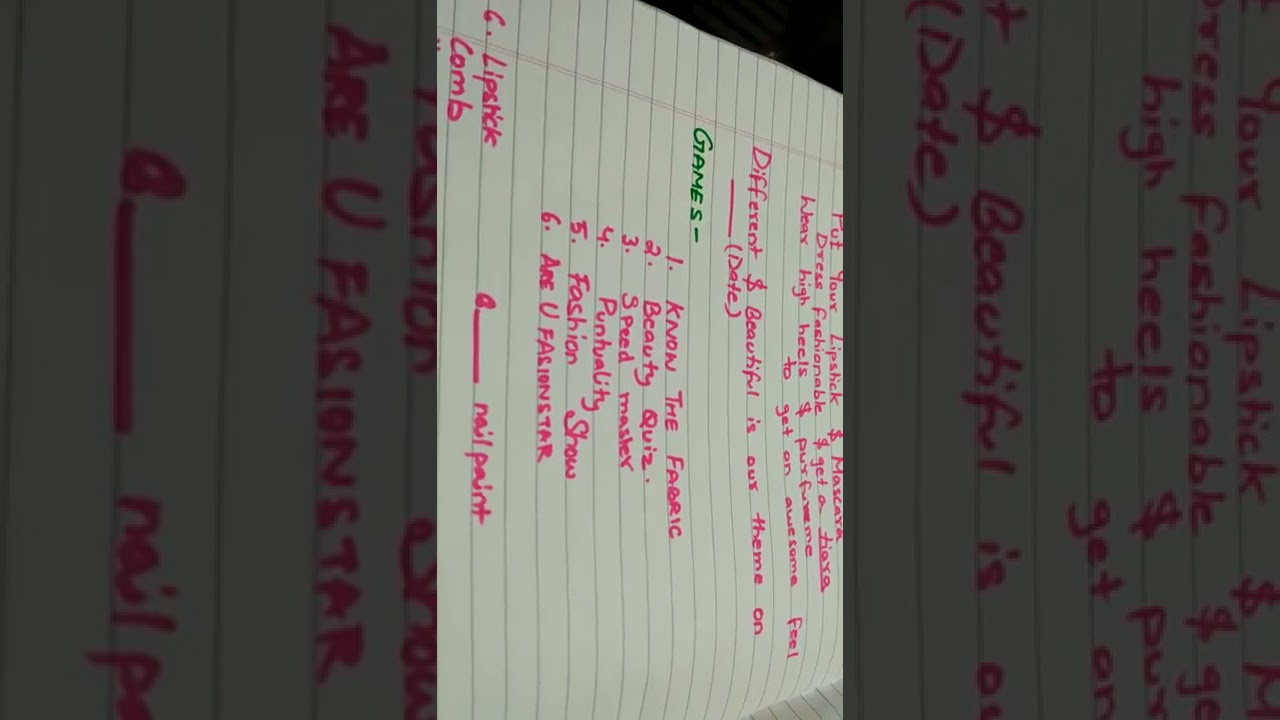 Put your Lipstick $ Mascara
Dress fashionable $ get a tiara
Wear high heels $ purfureme
to get an awesome feel
Different $ Beautiful is our theme on
____ (Date)
GAMES -
1. KNOW THE FABRIC
2. Beauty Quiz.
3. Speed master
4. Puntuality
5. Fashion Show
6. ARE U FASIONSTAR
6. Lipstick Q.____ nailpaint
Comb